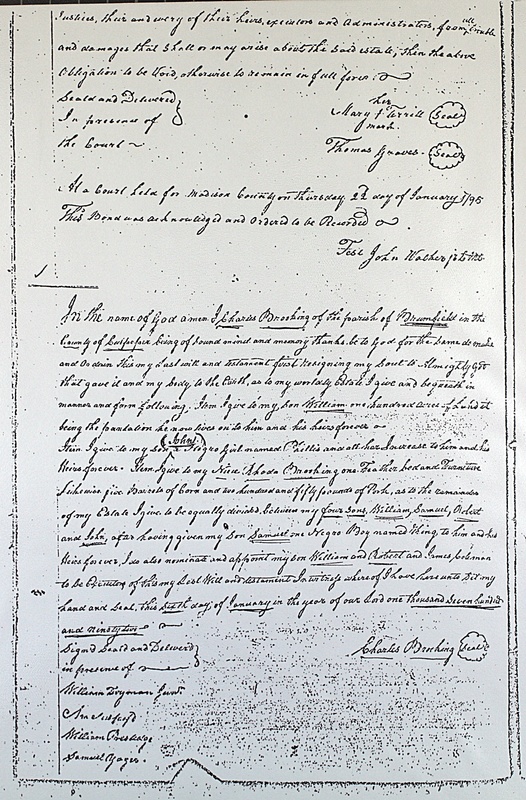 Justices, their and every of their heirs, executors and Administrators, from all trouble
and damages that shall or may arise about the said estate, then the above
Obligation to be Void, otherwise to remain in full force.
Seald and Delivered
In presence of
the Court
her
Mary + Terrill Seal
mark
Thomas Graves. Seal
At a Court held for Madison County on Thursday 22d day of January 1795
This Bond was acknowledged and Ordered to be Recorded
Teste John Walker
In the name of God amen I Charles Brooking of the parish of Brumfield in the
County of Culpeper being of Sound mind and memory thanks be to God for the same do make
and Ordain this my Last will and testament first Resigning my Soul to Almighty God
that gave it and my body to the Earth, as to my worldly Estate I give and bequeath in
manner and form following. Item I give to my Son William one hundred acres of Land it
being the plantation he now lives on to him and his heirs forever
Item I give to my Son (John) a Negro Girl named Phillis and all her Increase to him and his
Heirs forever. Item I give to my Niece Rhoda Brooking one Feather bed and Furniture
Likewise five Barrels of Corn and two hundred and fifty pounds of Pork, as to the remainder
of my Estate I give to be equally divided between my four sons, William, Samuel, Robert
and John, after having given my Son Samuel one Negro Boy named to him and his
Heirs forever. I do also nominate and appoint my son William and Robert and James Coleman
to be Executors of this my Last Will and testament In witness whereof I have here unto Set my
hand and Seal, this day of January in the year of our Lord one thousand Seven hundred
and ninety
Signd Seald and Deliverd
in presence of
Charles Brooking Seal
William Twyman
William
Samuel Yager.